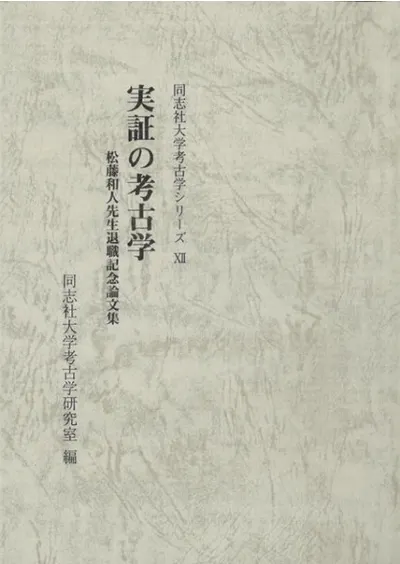 同志社大学考古学シリーズ XII
実証の考古学
松藤和人先生退職記念論文集
同志社大学考古学研究室 編